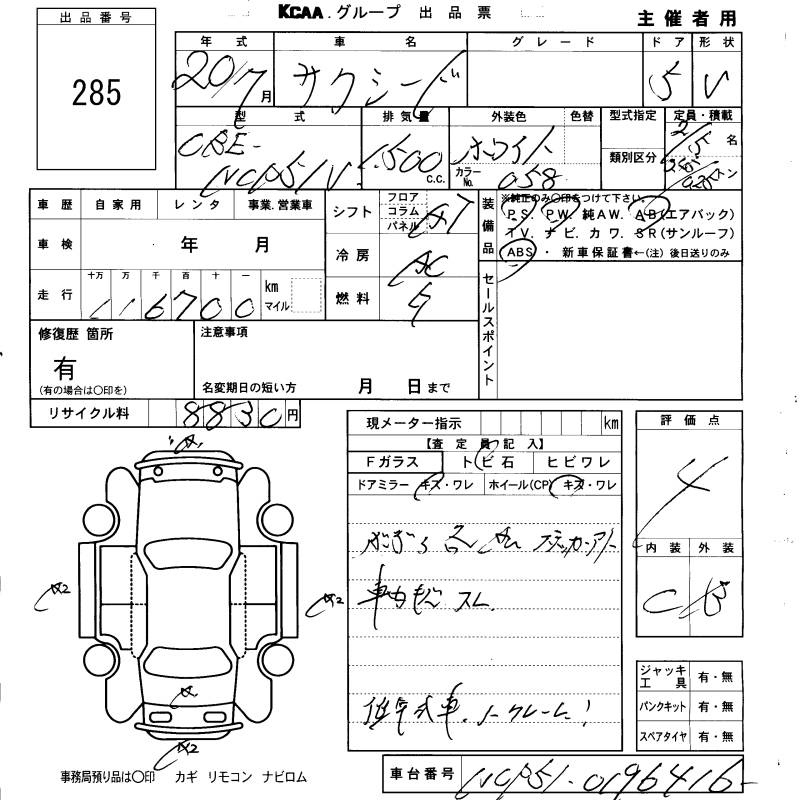 KCAA.グループ 出品票
主催者用
出品番号
285
年式 車名 グレード ドア 形状
20/7月 サクシード 5 V
型式 排気量 外装色 色替 型式指定 定員・積載
CBE- 2/5名
NCP51V 1500 C.C. ホワイト カラーNo. 058 類別区分 0.25トン
車歴 自家用 レンタ 事業.営業車
シフト フロア コラム パネル AT
装備品 ※純正のみ〇印をつけて下さい。
PS. PW. 純AW. AB(エアバック)
TV. ナビ. カワ. SR(サンルーフ)
ABS ・ 新車保証書←(注) 後日送りのみ
車検 年 月
冷房 AC
走行 十万 万 千 百 十 一 km マイル
116700
燃料 ガ
セールスポイント
修復歴 箇所 注意事項
有
(有の場合は〇印を) 名変期日の短い方 月 日まで
リサイクル料 8830円
現メーター指示 km
【査定員記入】
Fガラス トビ石 ヒビワレ
ドアミラー キズ・ワレ ホイール(CP) キズ・ワレ
評価点
4
内装 外装
C B
車内 スレ
低年式車.ノークレーム!
A2
A2
A2
ジャッキ工具 有・無
パンクキット 有・無
スペアタイヤ 有・無
事務局預り品は〇印 カギ リモコン ナビロム
車台番号 NCP51-0196416-